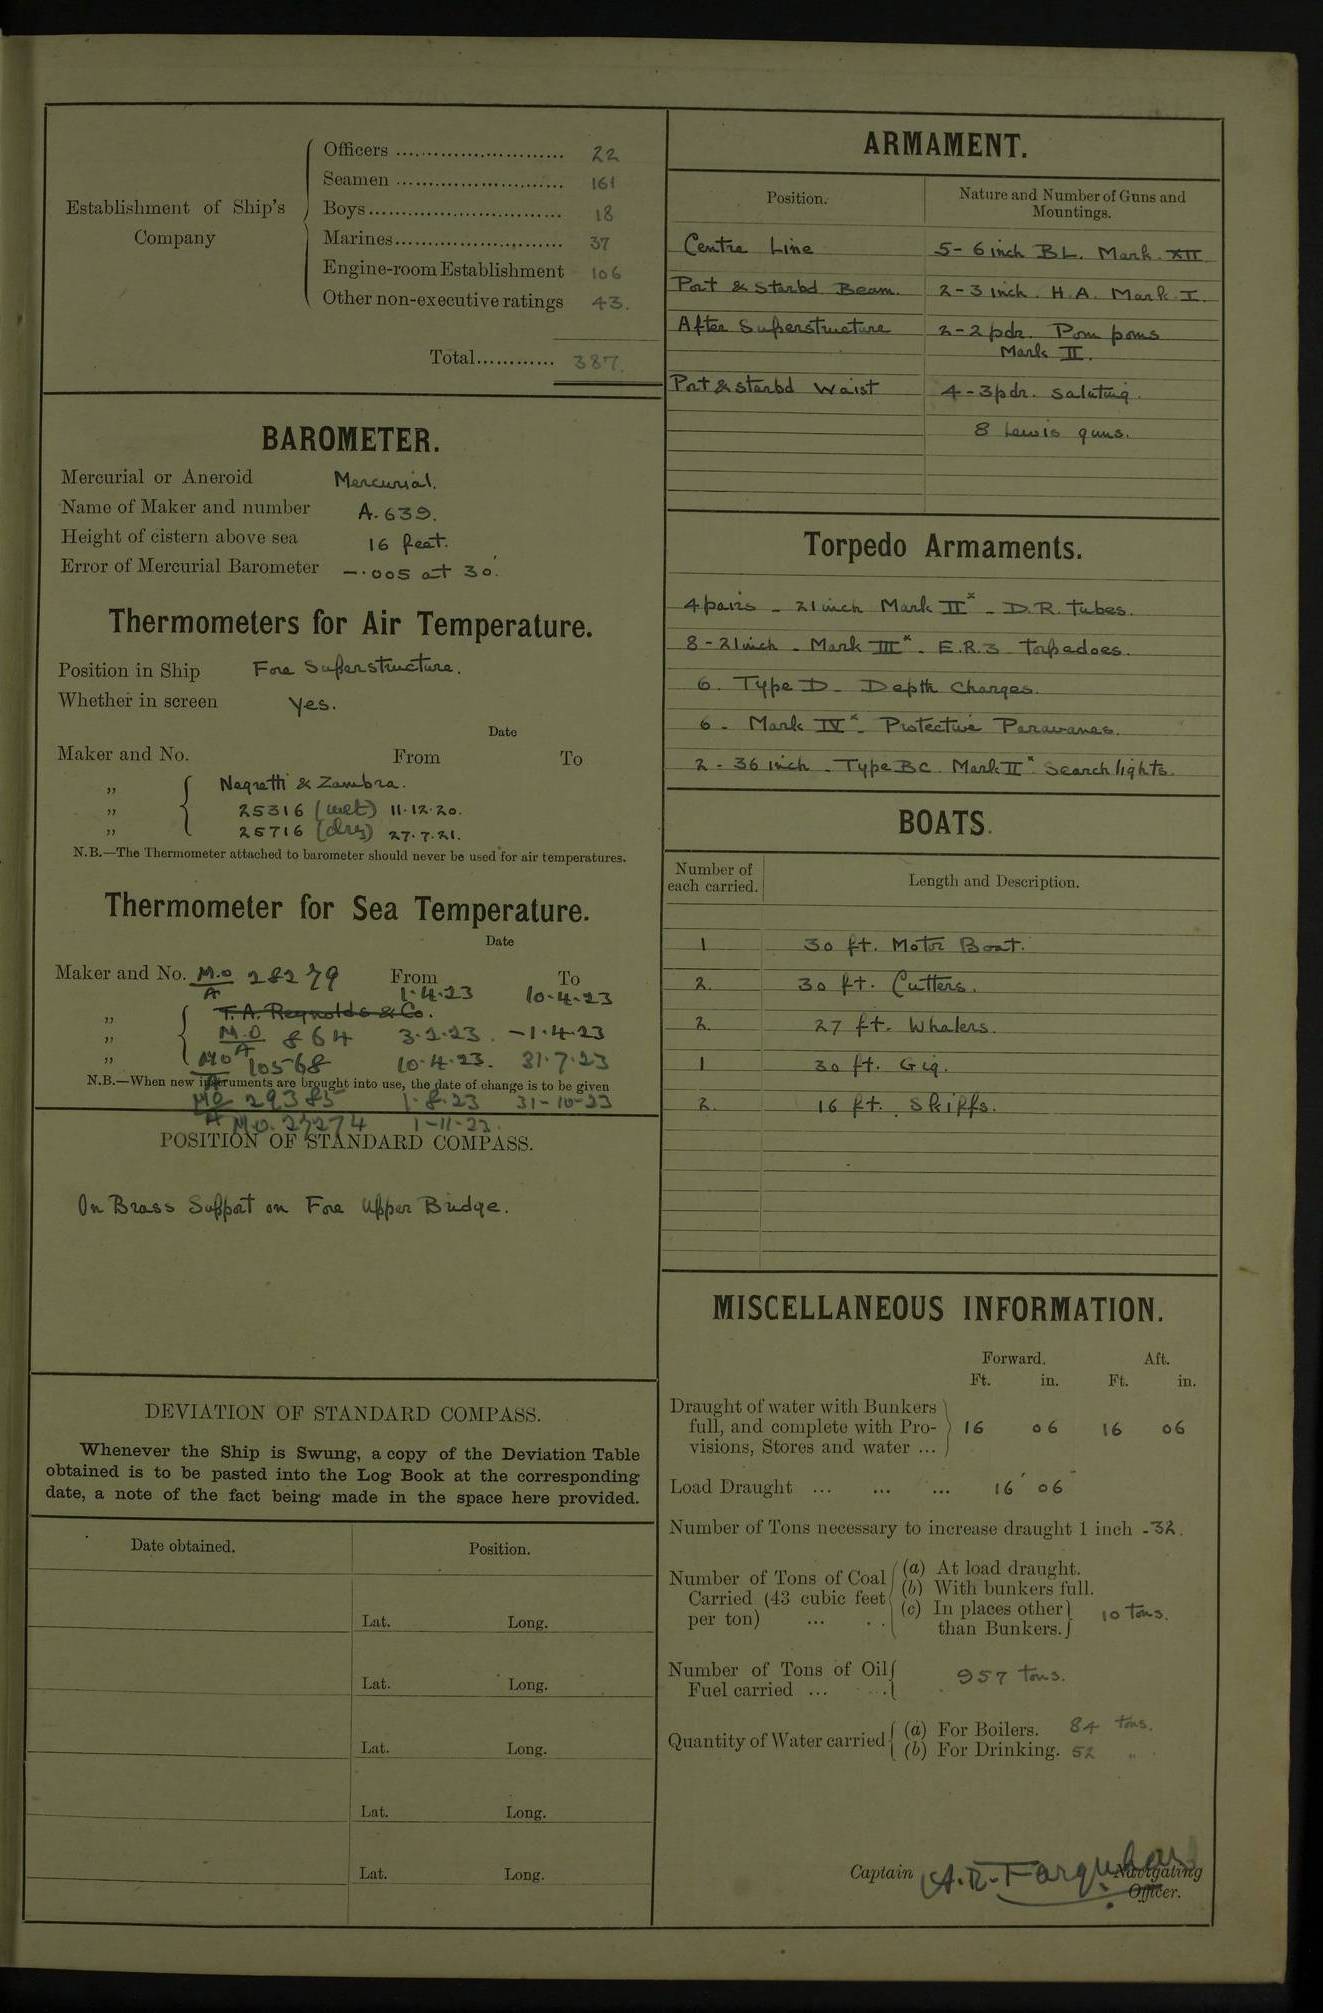 Establishment of Ship's Company
Officers .......................... 22
Seamen .......................... 161
Boys .............................. 18
Marines .......................... 37
Engine-room Establishment 106
Other non-executive ratings 43.
Total............ 387.
BAROMETER.
Mercurial or Aneroid Mercurial.
Name of Maker and number A. 639.
Height of cistern above sea 16 feet.
Error of Mercurial Barometer -.005 at 30.
Thermometers for Air Temperature.
Position in Ship Fore Superstructure.
Whether in screen Yes.
Date
Maker and No. From To
„ Negretti & Zambra.
„ 25316 (wet) 11.12.20.
„ 25716 (dry) 27.7.21.
N.B.—The Thermometer attached to barometer should never be used for air temperatures.
Thermometer for Sea Temperature.
Date
Maker and No. M.O 28279 From To
A 1.4.23 10-4-23
„ T. A. Reynolds & Co.
„ M.O A 864 3.2.23. -1.4.23
„ MO 10568 10.4.23. 31.7.23
N.B.—When new instruments are brought into use, the date of change is to be given
MO A 29385 1.8.23 31-10-23
M.O. 23274 1-11-23.
POSITION OF STANDARD COMPASS.
On Brass Support on Fore Upper Bridge.
DEVIATION OF STANDARD COMPASS.
Whenever the Ship is Swung, a copy of the Deviation Table
obtained is to be pasted into the Log Book at the corresponding
date, a note of the fact being made in the space here provided.
Date obtained. Position.
Lat. Long.
Lat. Long.
Lat. Long.
Lat. Long.
Lat. Long.
ARMAMENT.
Position. Nature and Number of Guns and Mountings.
Centre Line 5 - 6 inch B.L. Mark XII
Port & Starbd Beam. 2 - 3 inch. H.A. Mark I.
After Superstructure 2 - 2 pdr. Pom poms
Mark II.
Port & Starbd Waist 4 - 3 pdr. Saluting.
8 Lewis guns.
Torpedo Armaments.
4 pairs - 21 inch Mark II* - D.R. tubes.
8 - 21 inch - Mark III* - E.R.3 Torpedoes.
6. Type D - Depth Charges.
6 - Mark IV* - Protective Paravanes.
2 - 36 inch - Type BC. Mark II* Searchlights.
BOATS.
Number of each carried. Length and Description.
1 30 ft. Motor Boat.
2. 30 ft. Cutters.
2. 27 ft. Whalers.
1 30 ft. Gig.
2. 16 ft. Skiffs.
MISCELLANEOUS INFORMATION.
Forward. Aft.
Ft. in. Ft. in.
Draught of water with Bunkers
full, and complete with Pro- 16 06 16 06
visions, Stores and water ...
Load Draught ... ... ... 16' 06"
Number of Tons necessary to increase draught 1 inch - 32.
Number of Tons of Coal (a) At load draught.
Carried (43 cubic feet (b) With bunkers full.
per ton) ... .. (c) In places other
than Bunkers. 10 tons.
Number of Tons of Oil
Fuel carried ... .. 957 tons.
Quantity of Water carried (a) For Boilers. 84 tons.
(b) For Drinking. 52 „
Captain A.R. Farquhar Navigating
Officer.